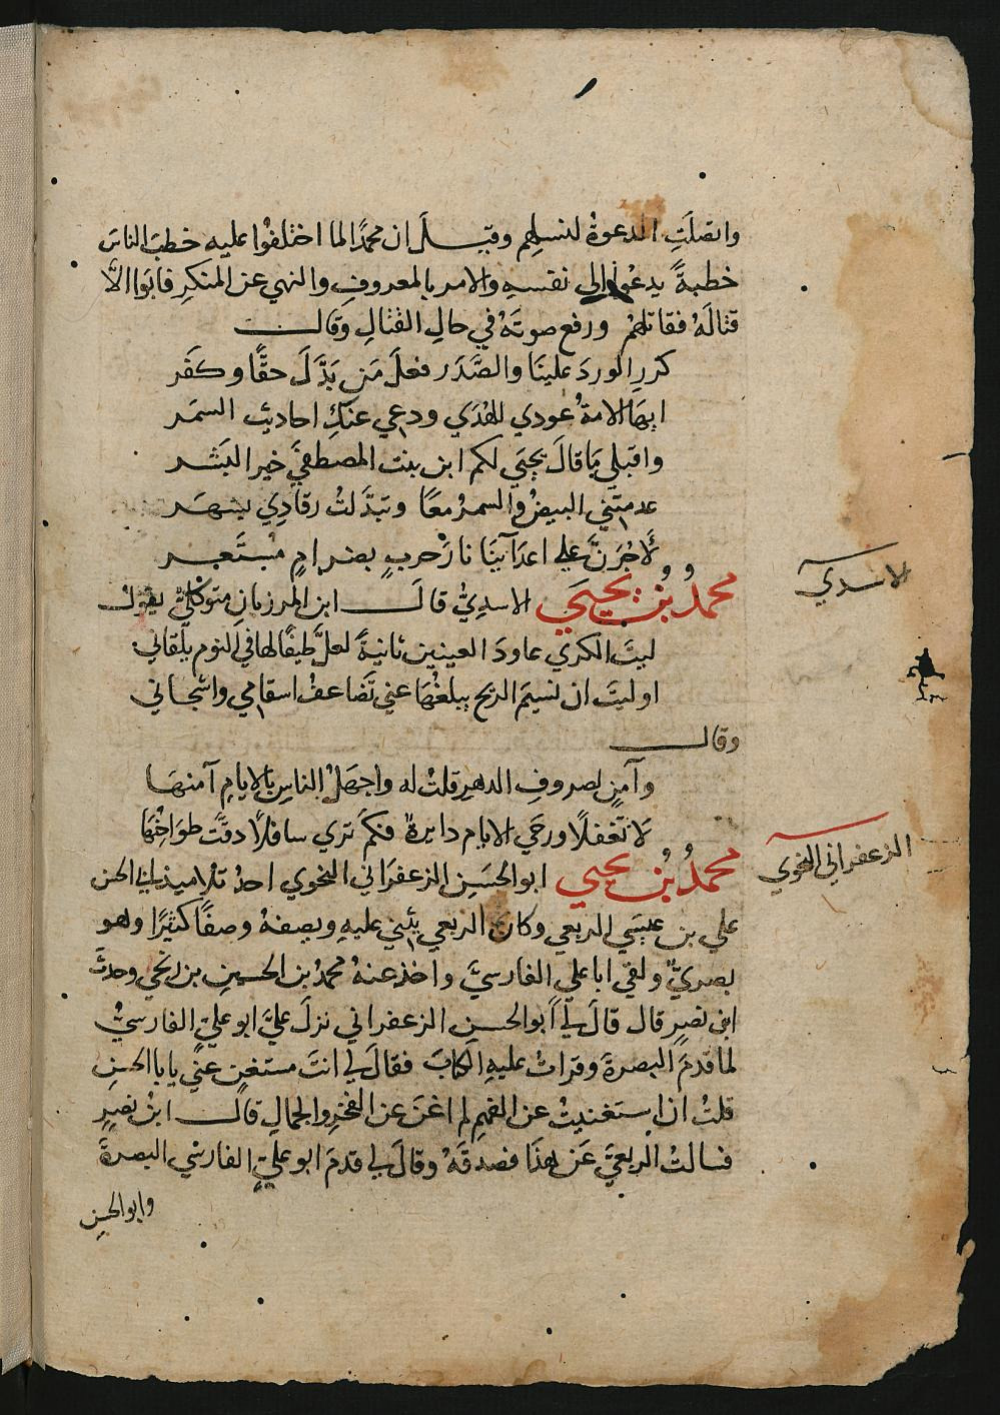 واتصلَتِ الدعوةُ لنسلهِم وقيـــل ان محمدًا لما اختلفُوا عليه خطبَ الناسَ
خطبةً يدعُوا إلى نفسهِ والامرِ بالمعروفِ والنهيِ عن المنكرِ فابَوا الَّا
قتالَهُ فقاتلهُمْ ورفع صوتَهُ في حالِ القتالِ وقالـــ
كرر الوردَ علينَا والصَّدَر فعلَ مَن بَدَّلَ حقًّا وكفَر
ايهَا الامةُ عودي للهُدَي ودعي عنكِ احاديثَ السمَر
واقبلي مَا قالَ يحيَي لكم ابن بنت المصطفيَ خير البَشَر
عدمتني البيضُ والسمرُ معًا وتبدَّلتُ رقادِي بسَهَر
لَأجُرَنَّ علي اعدَآيِنَا نارَ حربٍ بضرامٍ مُستَعِر
محمدُ بنُ يحيَي الاسديُّ قالَ ابن المرزبانِ متوكليٌّ يقولُ
الاسدي
ليتَ الكري عاودَ العينينِ ثانيةً لعلَّ طيفًا لها في النوم يلقاني
او ليتَ ان نسيمَ الريح يبلغُهَا عني تَضاعفُ اسقامي واشجاني
وقالـــ
وآمنٍ لصروفِ الدهرِ قلتُ له واجهَلُ الناسِ بالايامِ آمنهَا
لَا تغفلًا ورحَي الايام دايرةٌ فكم تري سافلًا دقَّت طوَاحِنُهَا
محمدُ بنُ يحيي ابو الحسَنِ الزعفرَاني النحوي احدُ تلاميذِ ابي الحسن
الزعفراني النحوي
علي بن عيسَي الربعي وكان الربعي يثني عليهِ ويصفهُ وصفًا كثيرًا وهو
بصريٌّ ولقي ابا علي الفارسيَّ واخذ عنهُ محمدُ بن الحسينِ بن نحي وحدثَ
ابن نصرٍ قال قالَ لي أبو الحسنِ الزعفراني نزلَ عليَّ ابو عليٍّ الفارسيُّ
لما قدمَ البصرةَ وقراتُ عليهِ الكتابَ فقالَ لي انتَ مستغنٍ عنّي يا با الحسنِ
قلتُ ان استغنيتُ عن الفهمِ لم اغنَ عن الفخرِ والجمالِ قالـــ ابنُ نصرٍ
فسالتُ الربعيَّ عَن هذَا فصدقَهُ وقالَ لي قدمَ ابو عليٍّ الفارسُي البصرةَ
وابو الحسن